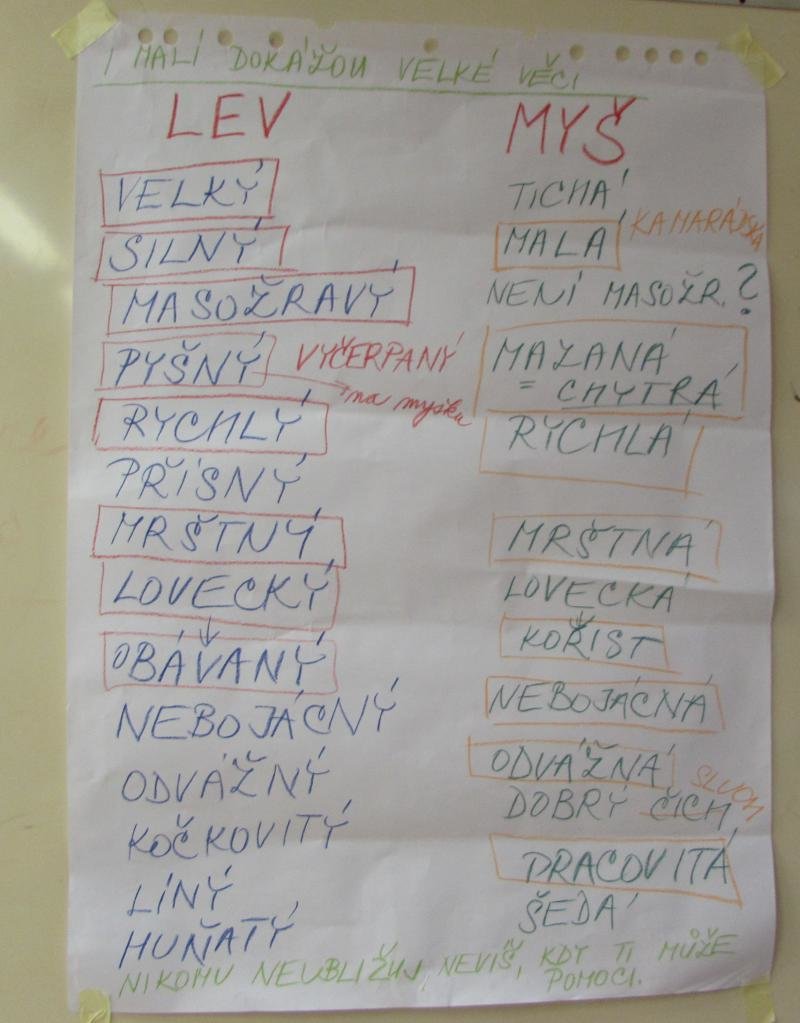 I MALÍ DOKÁŽOU VELKÉ VĚCI
LEV
VELKÝ
SILNÝ
MASOŽRAVÝ
PYŠNÝ VYČERPANÝ
na myšku
RYCHLÝ
PŘÍSNÝ
MRŠTNÝ
LOVECKÝ
OBÁVANÝ
NEBOJÁCNÝ
ODVÁŽNÝ
KOČKOVITÝ
LÍNÝ
HUŇATÝ
MYŠ
TICHÁ
MALÁ KAMARÁDSKÁ
NENÍ MASOŽR.?
MAZANÁ
= CHYTRÁ
RYCHLÁ
MRŠTNÁ
LOVECKÁ
KOŘIST
NEBOJÁCNÁ
ODVÁŽNÁ
DOBRÝ ČICH SLUCH
PRACOVITÁ
ŠEDÁ
NIKOMU NEUBLIŽUJ, NEVÍŠ, KDY TI MŮŽE
POMOCI.